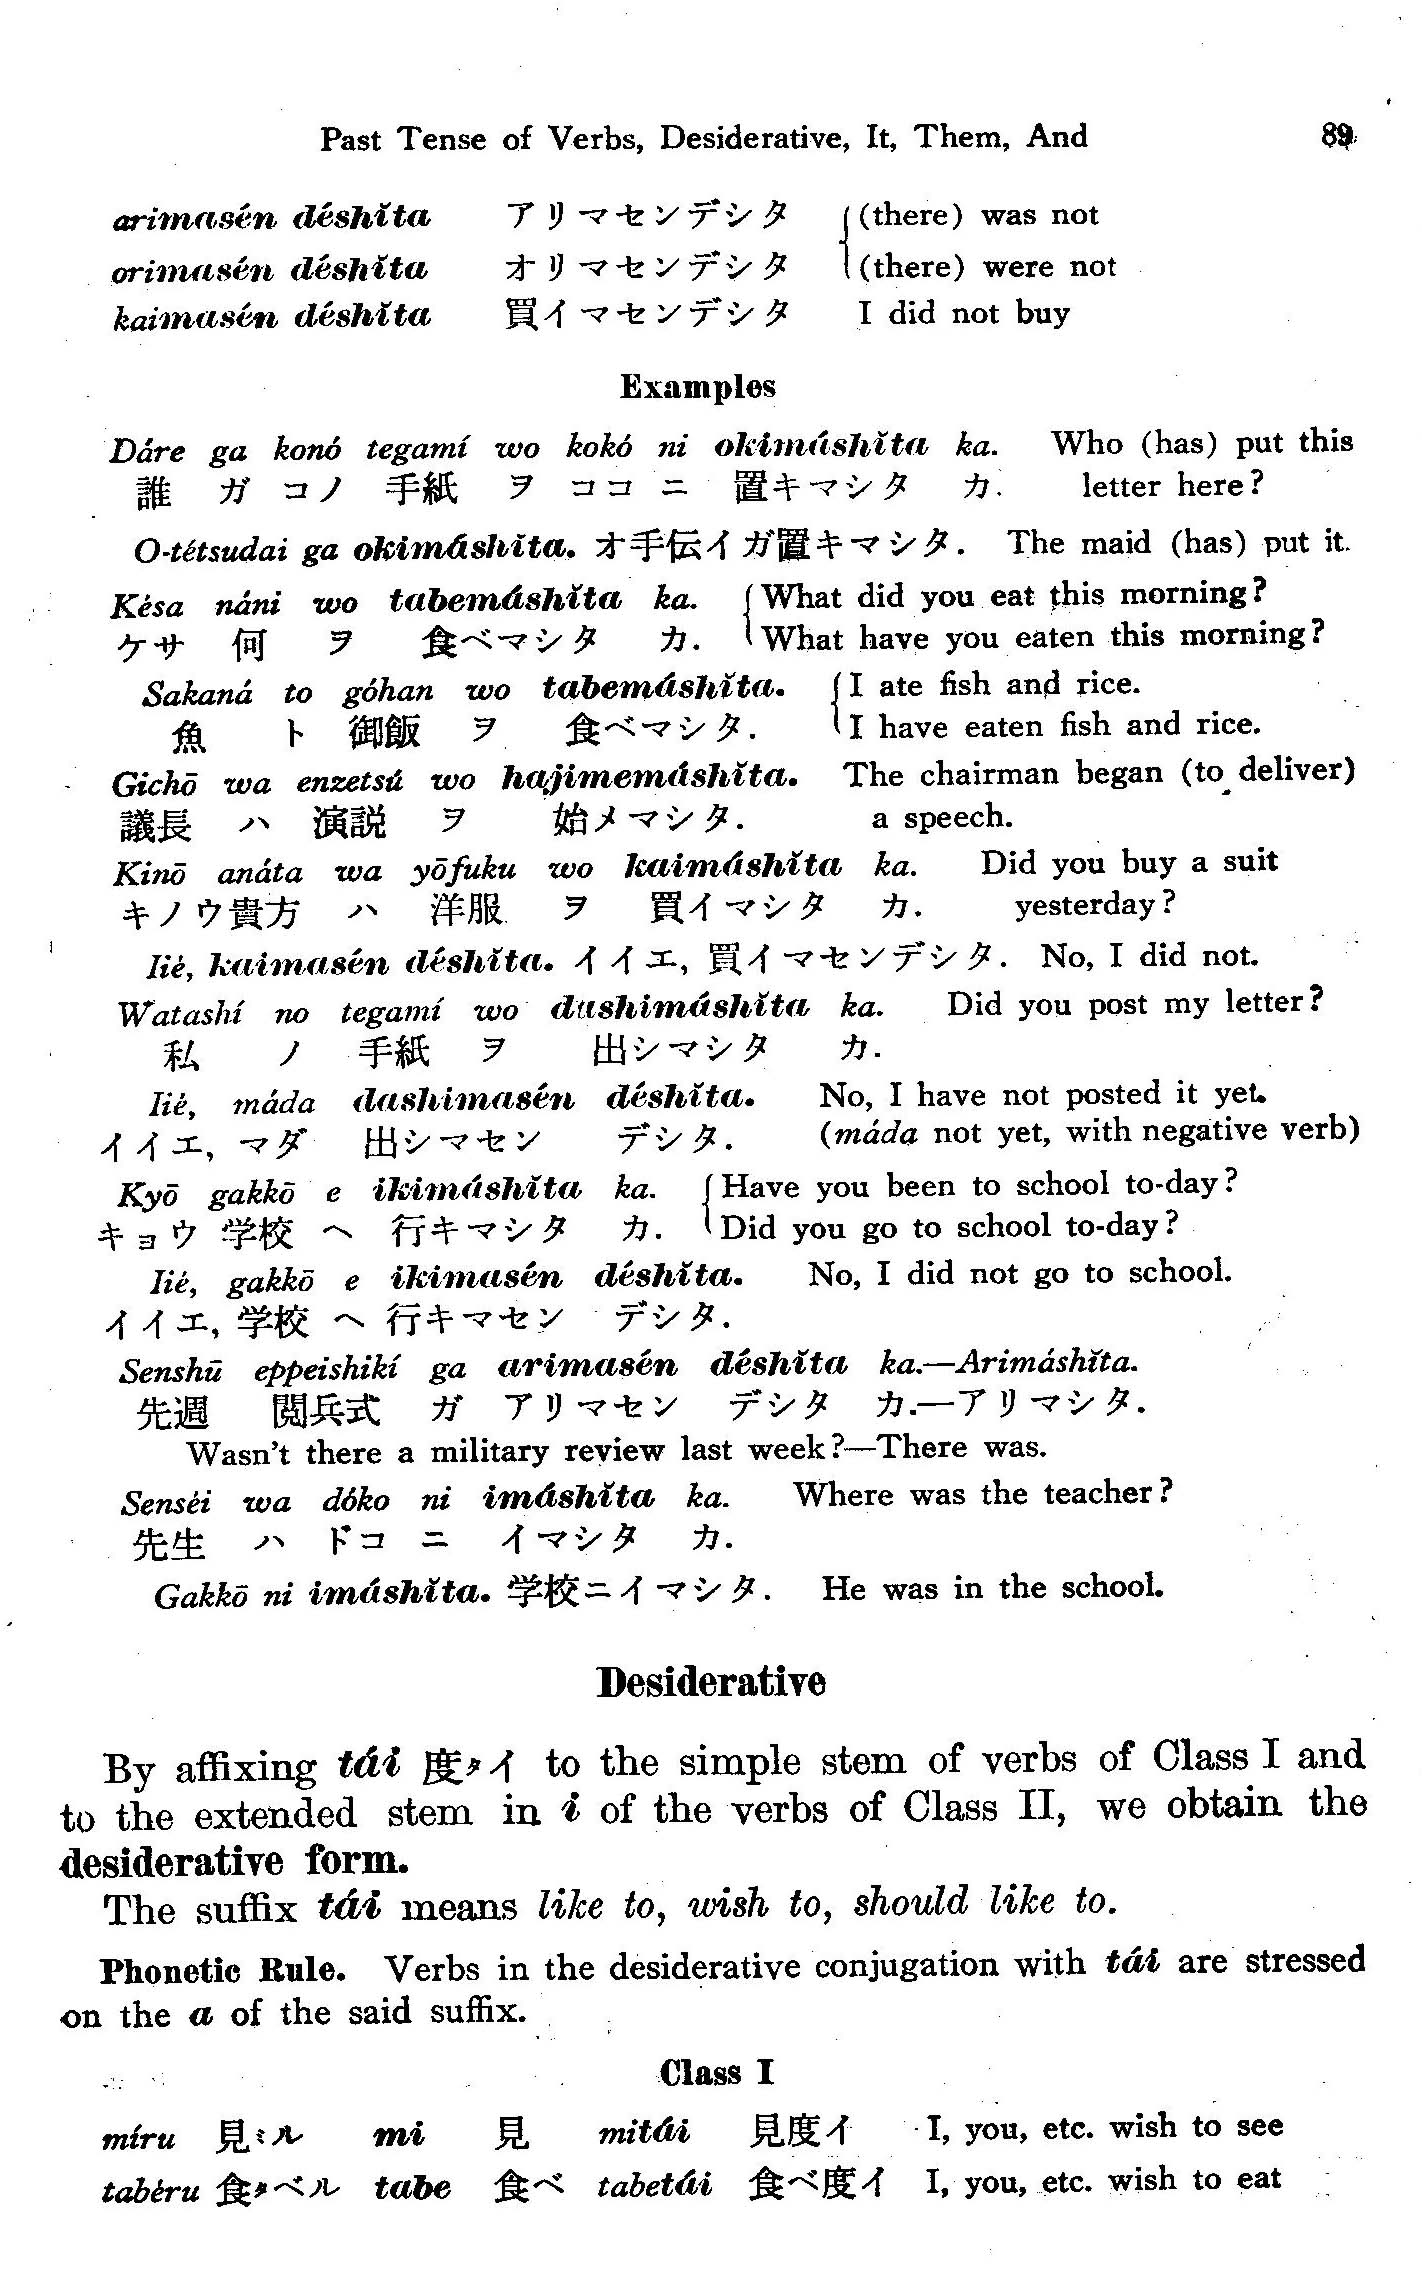 Past Tense of Verbs, Desiderative, It, Them, And 89
arimasén déshĭta アリマセンデシタ (there) was not
orimasén déshĭta オリマセンデシタ (there) were not
kaimasén déshĭta 買イマセンデシタ I did not buy
Examples
Dáre ga konó tegamí wo kokó ni okimáshĭta ka. Who (has) put this
誰 ガ コノ 手紙 ヲ ココ ニ 置キマシタ カ. letter here?
O-tétsudai ga okimáshĭta. オ手伝イガ置キマシタ. The maid (has) put it.
Késa náni wo tabemáshĭta ka. What did you eat this morning?
ケサ 何 ヲ 食ベマシタ カ. What have you eaten this morning?
Sakaná to góhan wo tabemáshĭta. I ate fish and rice.
魚 ト 御飯 ヲ 食ベマシタ. I have eaten fish and rice.
Gichō wa enzetsú wo hajimemáshĭta. The chairman began (to deliver)
議長 ハ 演説 ヲ 始メマシタ. a speech.
Kinō anáta wa yōfuku wo kaimáshĭta ka. Did you buy a suit
キノウ貴方 ハ 洋服 ヲ 買イマシタ カ. yesterday?
Iié, kaimasén déshĭta. イイエ, 買イマセンデシタ. No, I did not.
Watashí no tegamí wo dashimáshĭta ka. Did you post my letter?
私 ノ 手紙 ヲ 出シマシタ カ.
Iié, máda dashimasén déshĭta. No, I have not posted it yet.
イイエ, マダ 出シマセン デシタ. (máda not yet, with negative verb)
Kyō gakkō e ikimáshĭta ka. Have you been to school to-day?
キョウ 学校 ヘ 行キマシタ カ. Did you go to school to-day?
Iié, gakkō e ikimasén déshĭta. No, I did not go to school.
イイエ, 学校 ヘ 行キマセン デシタ.
Senshū eppeishikí ga arimasén déshĭta ka.—Arimáshĭta.
先週 閲兵式 ガ アリマセン デシタ カ.—アリマシタ.
Wasn't there a military review last week?—There was.
Senséi wa dóko ni imáshĭta ka. Where was the teacher?
先生 ハ ドコ ニ イマシタ カ.
Gakkō ni imáshĭta. 学校ニイマシタ. He was in the school.
Desiderative
By affixing tái 度タイ to the simple stem of verbs of Class I and
to the extended stem in i of the verbs of Class II, we obtain the
desiderative form.
The suffix tái means like to, wish to, should like to.
Phonetic Rule. Verbs in the desiderative conjugation with tái are stressed
on the a of the said suffix.
Class I
míru 見ミル mi 見 mitái 見度イ I, you, etc. wish to see
tabéru 食タベル tabe 食ベ tabetái 食ベ度イ I, you, etc. wish to eat